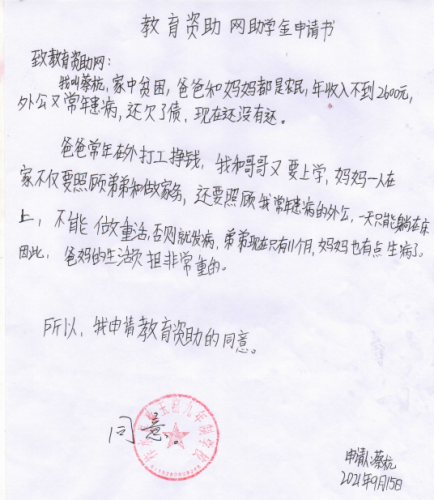 教育资助网助学金申请书
致教育资助网：
我叫蔡杭，家中贫困，爸爸和妈妈都是农民，年收入不到2600元，
外公又常年患病，还欠了债，现在还没有还。
爸爸常年在外打工挣钱，我和哥哥又要上学，妈妈一人在
家不仅要照顾弟弟和做家务，还要照顾我常年患病的外公，一天只能躺在床
上，不能做重活，否则就发病，弟弟现在只有11个月，妈妈也有点生病了。
因此，爸妈的生活负担非常重的。
所以，我申请教育资助的同意。
同意。
九年制学校
申请人：蔡杭
2021年9月15日